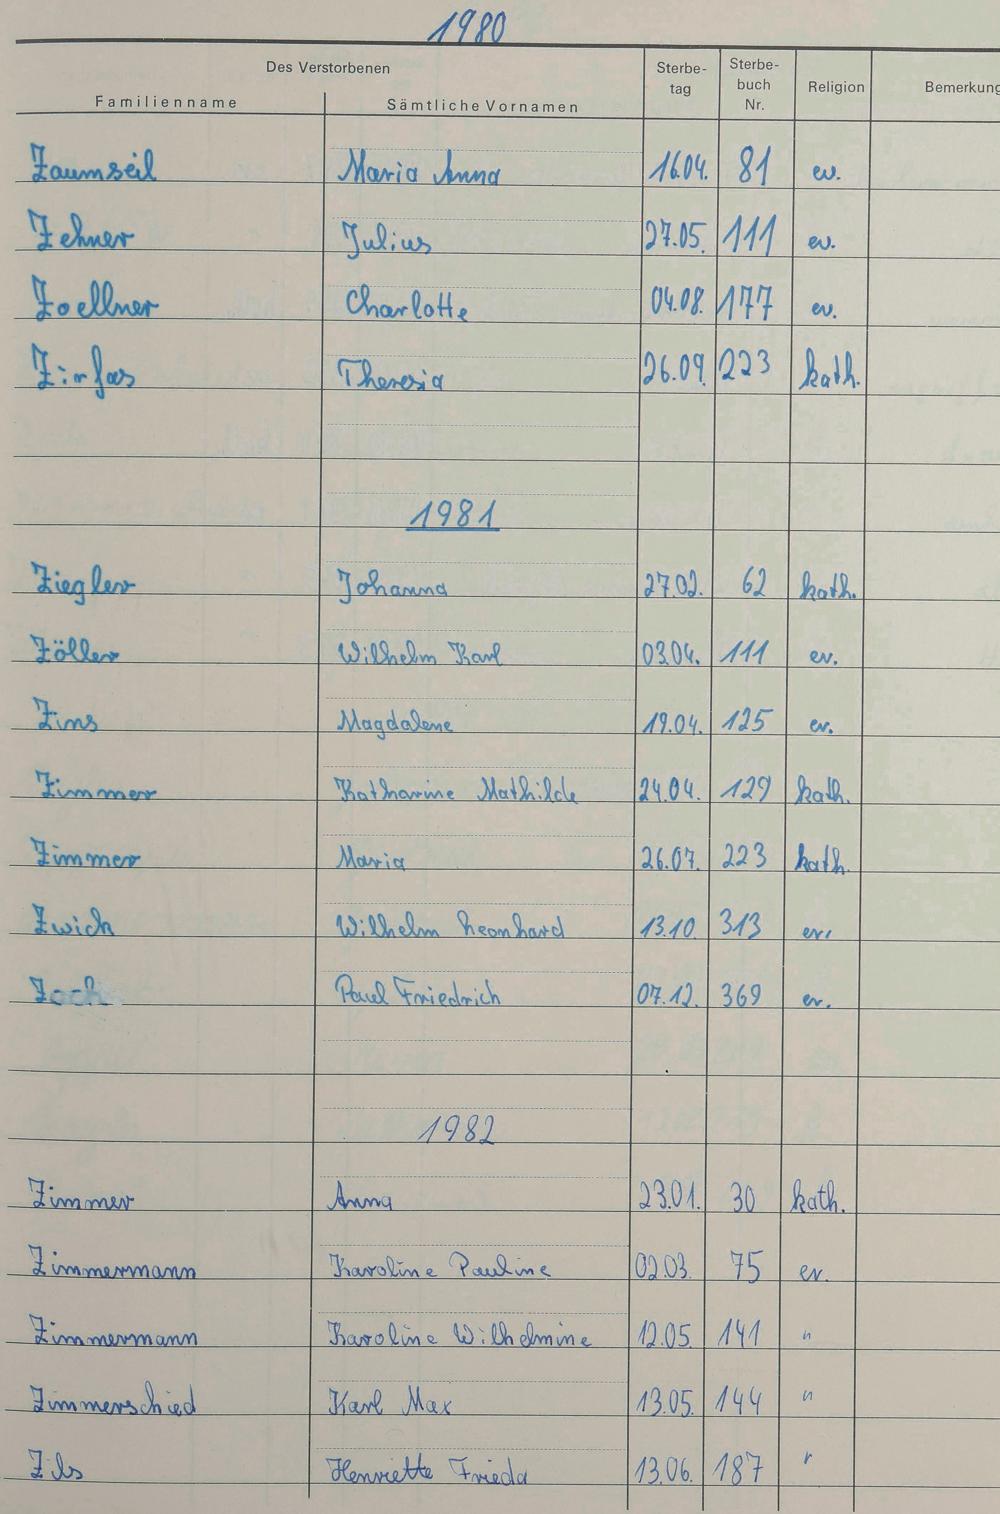 1980
Des Verstorbenen Sterbe- Sterbe- Religion Bemerkung
Familienname Sämtliche Vornamen tag buch
Nr.
Zaumseil Maria Anna 16.04. 81 ev.
Zehner Julius 27.05. 111 ev.
Zoellner Charlotte 04.08. 177 ev.
Zirfas Theresia 26.09. 223 kath.
1981
Ziegler Johanna 27.02. 62 kath.
Zöller Wilhelm Karl 03.04. 111 ev.
Zins Magdalene 19.04. 125 ev.
Zimmer Katharine Mathilde 24.04. 129 kath.
Zimmer Maria 26.07. 223 kath.
Zwick Wilhelm Leonhard 13.10. 313 ev.
Zoch Paul Friedrich 07.12. 369 ev.
1982
Zimmer Anna 23.01. 30 kath.
Zimmermann Karoline Pauline 02.03. 75 ev.
Zimmermann Karoline Wilhelmine 12.05. 141 "
Zimmerschied Karl Max 13.05. 144 "
Zils Henriette Frieda 13.06. 187 "